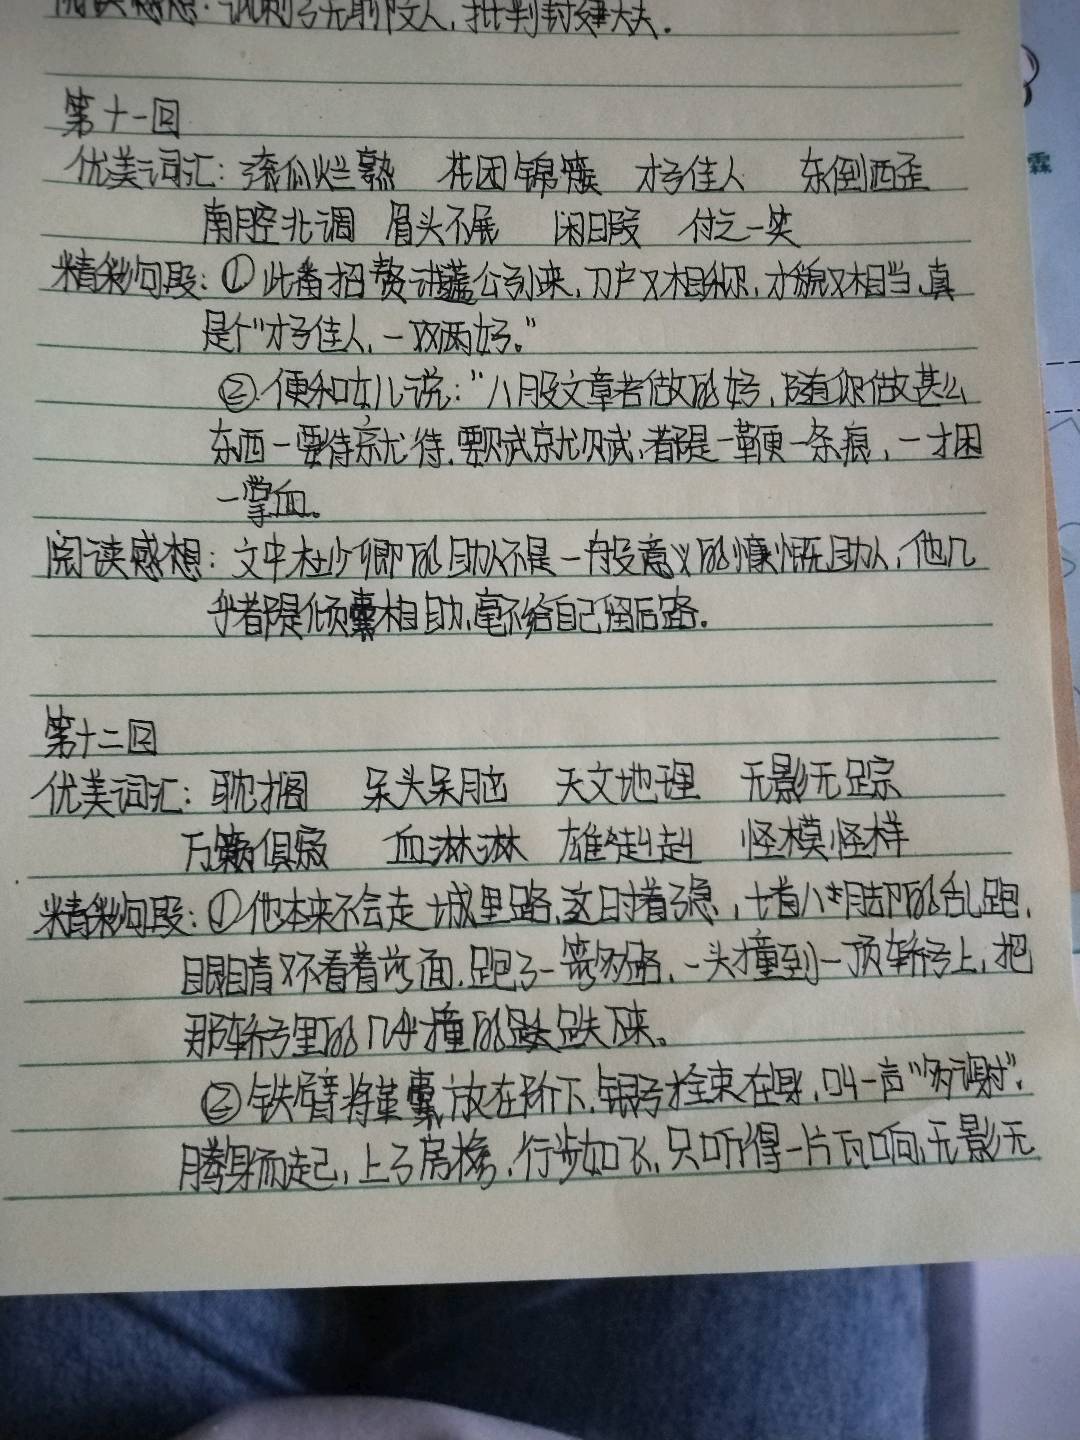 阅读感想：讽刺了无聊文人，批判封建大夫。
第十一回
优美词汇：滚瓜烂熟 花团锦簇 才子佳人 东倒西歪
南腔北调 眉头不展 闲日段 付之一笑
精彩句段：①此番招赘蘧公孙来，门户又相称，才貌又相当，真
是个“才子佳人，一双两好。”
②便和女儿说：“八股文章若做的好，随你做甚么
东西一要诗就诗，要赋就赋，都是一鞭一条痕，一掴
一掌血。
阅读感想：文中杜少卿的助人不是一般意义的慷慨助人，他几
乎都是倾囊相助，毫不给自己留后路。
第十二回
优美词汇：耽搁 呆头呆脑 天文地理 无影无踪
万籁俱寂 血淋淋 雄赳赳 怪模怪样
精彩句段：①他本来不会走城里路，这日时着了急，七首八脚的乱跑，
眼睛又不看着前面，跑了一箭多路，一头撞到一顶轿子上，把
那轿子里的几乎撞的跌跌下来。
②铁臂将革囊放在阶下，银子拴束在身，叫一声“多谢”，
腾身而起，上了房檐，行步如飞，只听得一片瓦响，无影无
霖